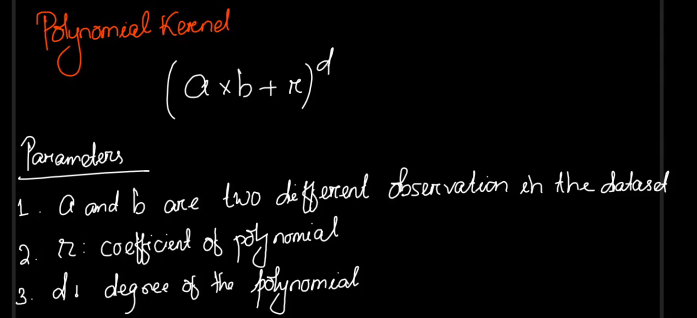 Polynomial Kernel
(a × b + r)^d
Parameters
1. a and b are two different observation in the dataset
2. r: coefficient of polynomial
3. d: degree of the polynomial